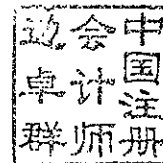 中国注册
会计师
卓群